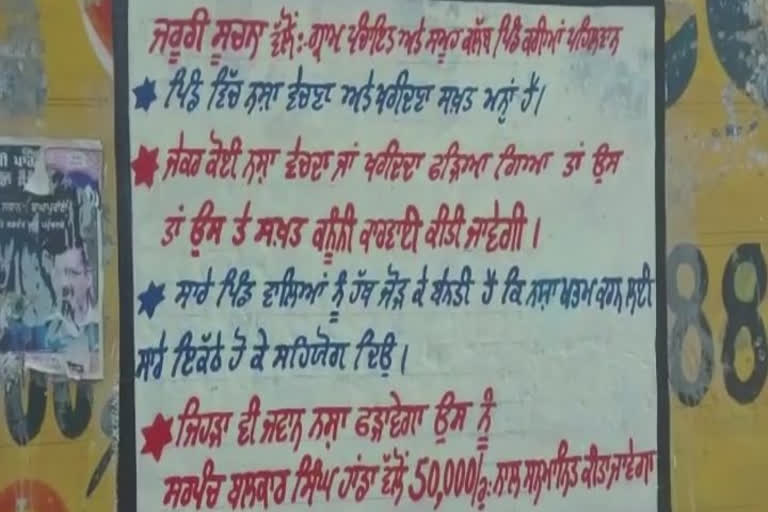 ਜਰੂਰੀ ਸੂਚਨਾ ਵੱਲੋਂ:- ਗ੍ਰਾਮ ਪੰਚਾਇਤ ਅਤੇ ਸਮੂਹ ਕਲੱਬ ਪਿੰਡ ਕਰੀਆਂ ਪਹਿਲਵਾਨ
★ ਪਿੰਡ ਵਿੱਚ ਨਸ਼ਾ ਵੇਚਣਾ ਅਤੇ ਖਰੀਦਣਾ ਸਖ਼ਤ ਮਨਾਂ ਹੈ।
★ ਜੇਕਰ ਕੋਈ ਨਸ਼ਾ ਵੇਚਦਾ ਜਾਂ ਖਰੀਦਦਾ ਫੜਿਆ ਗਿਆ ਤਾਂ ਉਸ
ਤਾਂ ਉਸ ਤੇ ਸਖ਼ਤ ਕਨੂੰਨੀ ਕਾਰਵਾਈ ਕੀਤੀ ਜਾਵੇਗੀ।
★ ਸਾਰੇ ਪਿੰਡ ਵਾਲਿਆਂ ਨੂੰ ਹੱਥ ਜੋੜ ਕੇ ਬੇਨਤੀ ਹੈ ਕਿ ਨਸ਼ਾ ਖਤਮ ਕਰਨ ਲਈ
ਸਾਰੇ ਇਕੱਠੇ ਹੋ ਕੇ ਸਹਿਯੋਗ ਦਿਓ।
★ ਜਿਹੜਾ ਵੀ ਜਵਾਨ ਨਸ਼ਾ ਫੜਾਵੇਗਾ ਉਸ ਨੂੰ
ਸਰਪੰਚ ਬਲਕਾਰ ਸਿੰਘ ਹਾਂਡਾ ਵੱਲੋਂ 50,000/ਰੁ: ਨਾਲ ਸਨਮਾਨਿਤ ਕੀਤਾ ਜਾਵੇਗਾ
88